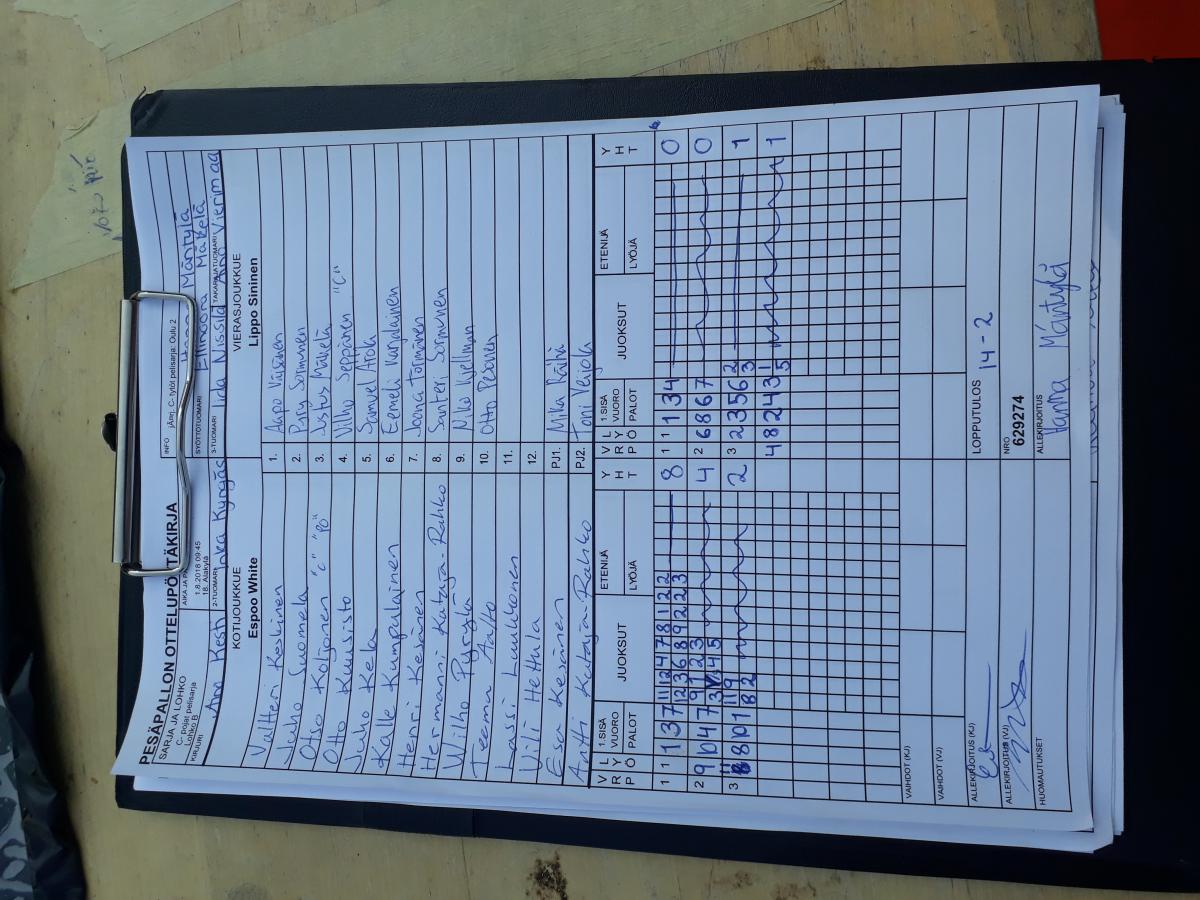 PESÄPALLON OTTELUPÖYTÄKIRJA
SARJA JA LOHKO
C- pojat pelisarja
Lohko B
AIKA JA
1.8.2018 09:45
18. Alakylä
INFO jÄRrj. C- tytöt pelisarja: Oulu 2
Hanna Mäntylä
SYÖTTÖTUOMARI Ellinoora Mäkelä
KIRJURI
2-TUOMARI
3-TUOMARI Iida Nissilä
TAKARAJATUOMARI Aino Vierimaa
KOTIJOUKKUE
Espoo White
VIERASJOUKKUE
Lippo Sininen
Valtteri Keskinen 1. Aapo Väisänen
Juho Suomela 2. Pyry Sormunen
Otso Koljonen "c" "pö" 3. Justus Mäkelä
Otto Kuusisto 4. Vilho Seppänen "C"
Juho Kela 5. Samuel Arola
Kalle Kumpulainen 6. Eemeli Karjalainen
Henri Kesänen 7. Joona Törmänen
Hermanni Kataja-Rahko 8. Santeri Sormunen
Wilho Pyrylä 9. Niko Kjellman
Teemu Aalto 10. Otto Pesonen
Lassi Luukkonen 11.
Vili Hettula 12.
Esa Kesänen PJ1. Mika Räihä
Antti Kataja-Rahko PJ2. Toni Veijola
V R P L Y Ö 1.SISÄ VUORO PALOT JUOKSUT ETENIJÄ LYÖJÄ Y H T
V R P L Y Ö 1.SISÄ VUORO PALOT JUOKSUT ETENIJÄ LYÖJÄ Y H T
1 1 1 3 7 11 12 4 7 8 1 2 2 8
12 3 6 8 9 2 2 3
1 1 1 3 4 0
2 9 10 4 7 9 1 2 3 4
3 4 5
2 6 8 6 7 0
3 8 10 1 11 9 2
8 2
3 2 3 5 6 2 1
3
4 8 2 4 3 1 1
5
VAIHDOT (KJ)
VAIHDOT (VJ)
ALLEKIRJOITUS (KJ)
LOPPUTULOS 14-2
ALLEKIRJOITUS (VJ)
NRO
629274
HUOMAUTUKSET
ALLEKIRJOITUS
Hanna Mäntylä